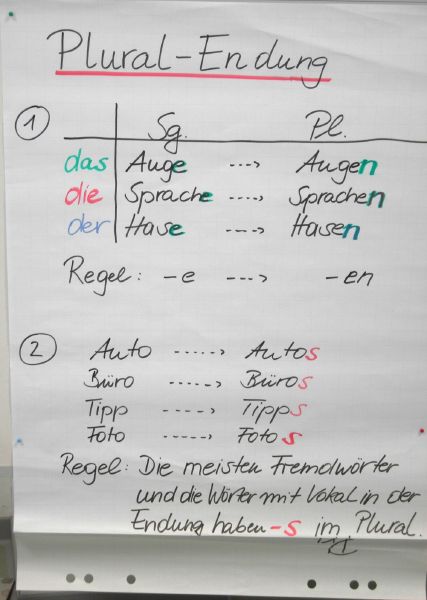 Plural-Endung
1
Sg. Pl.
das Auge ---> Augen
die Sprache ---> Sprachen
der Hase ---> Hasen
Regel: -e ---> -en
2
Auto ----> Autos
Büro ----> Büros
Tipp ----> Tipps
Foto ----> Fotos
Regel: Die meisten Fremdwörter
und die Wörter mit Vokal in der
Endung haben -s im Plural.